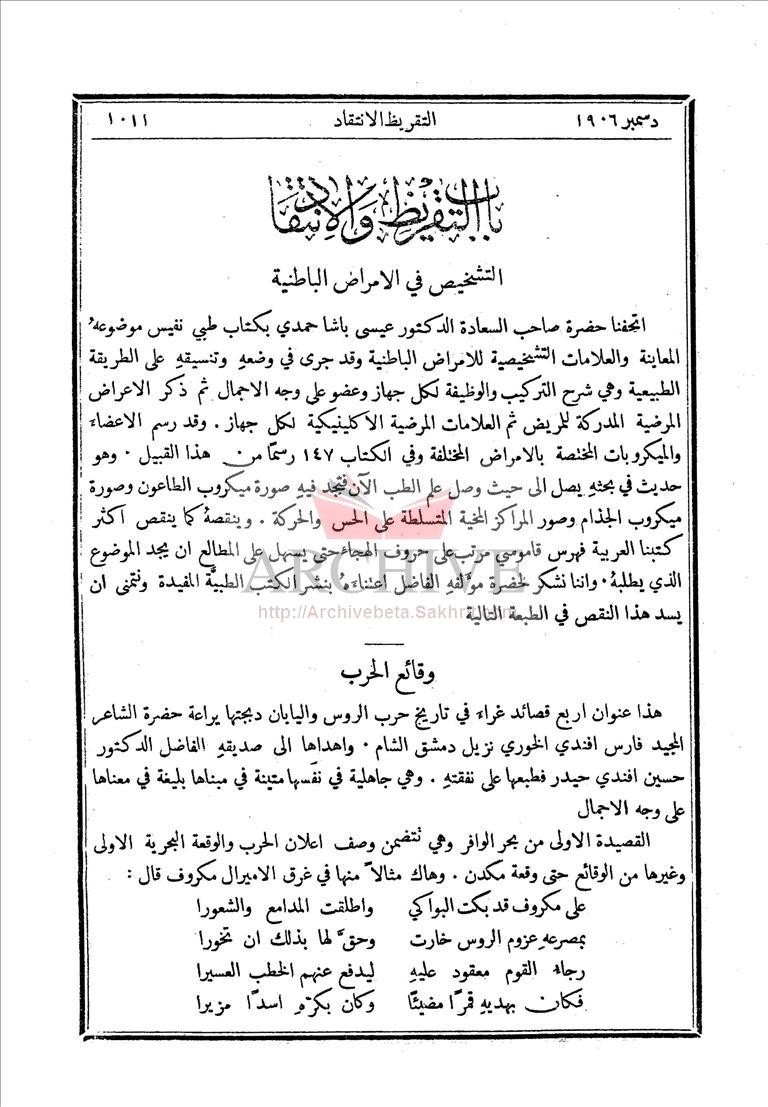 دسمبر ١٩٠٦ التقريظ الانتقاد ١٠١١
باب التقريظ والانتقاد
التشخيص في الامراض الباطنية
اتحفنا حضرة صاحب السعادة الدكتور عيسى باشا حمدي بكتاب طبي نفيس موضوعهُ
المعاينة والعلامات التشخيصية للامراض الباطنية وقد جرى في وضعهِ وتنسيقهِ على الطريقة
الطبيعية وهي شرح التركيب والوظيفة لكل جهاز وعضو على وجه الاجمال ثم ذكر الاعراض
المرضية المدركة للمريض ثم العلامات المرضية الاكلينيكية لكل جهاز . وقد رسم الاعضاء
والميكروبات المختصة بالامراض المختلفة وفي الكتاب ١٤٧ رسمًا من هذا القبيل . وهو
حديث في بحثهِ يصل الى حيث وصل علم الطب الآن فتجد فيهِ صورة ميكروب الطاعون وصورة
ميكروب الجذام وصور المراكز المخية المتسلطة على الحس والحركة . وينقصهُ كما ينقص اكثر
كتبنا العربية فهرس قاموسي مرتب على حروف الهجاء حتى يسهل على المطالع ان يجد الموضوع
الذي يطلبهُ . واننا نشكر لحضرة مؤلفهِ الفاضل اعتناءهُ بنشر الكتب الطبيَّة المفيدة ونتمنى ان
يسد هذا النقص في الطبعة التالية
ARCHIVE
http://Archivebeta.Sakhrit.com
وقائع الحرب
هذا عنوان اربع قصائد غراء في تاريخ حرب الروس واليابان دبجتها يراعة حضرة الشاعر
المجيد فارس افندي الخوري نزيل دمشق الشام . واهداها الى صديقهِ الفاضل الدكتور
حسين افندي حيدر فطبعها على نفقتهِ . وهي جاهلية في نفَسها متينة في مبناها بليغة في معناها
على وجه الاجمال
القصيدة الاولى من بحر الوافر وهي نتضمن وصف اعلان الحرب والوقعة البحرية الاولى
وغيرها من الوقائع حتى وقعة مكدن . وهاك مثالاً منها في غرق الاميرال مكروف قال :
على مكروف قد بكت البواكي واطلقت المدامع والشعورا
بمصرعهِ عزوم الروس خارت وحقَّ لها بذلك ان تخورا
رجاء القوم معقود عليهِ ليدفع عنهم الخطب العسيرا
فكان بهديهِ قمرًا مضيئًا وكان بكرّهِ اسدًا مزيرا